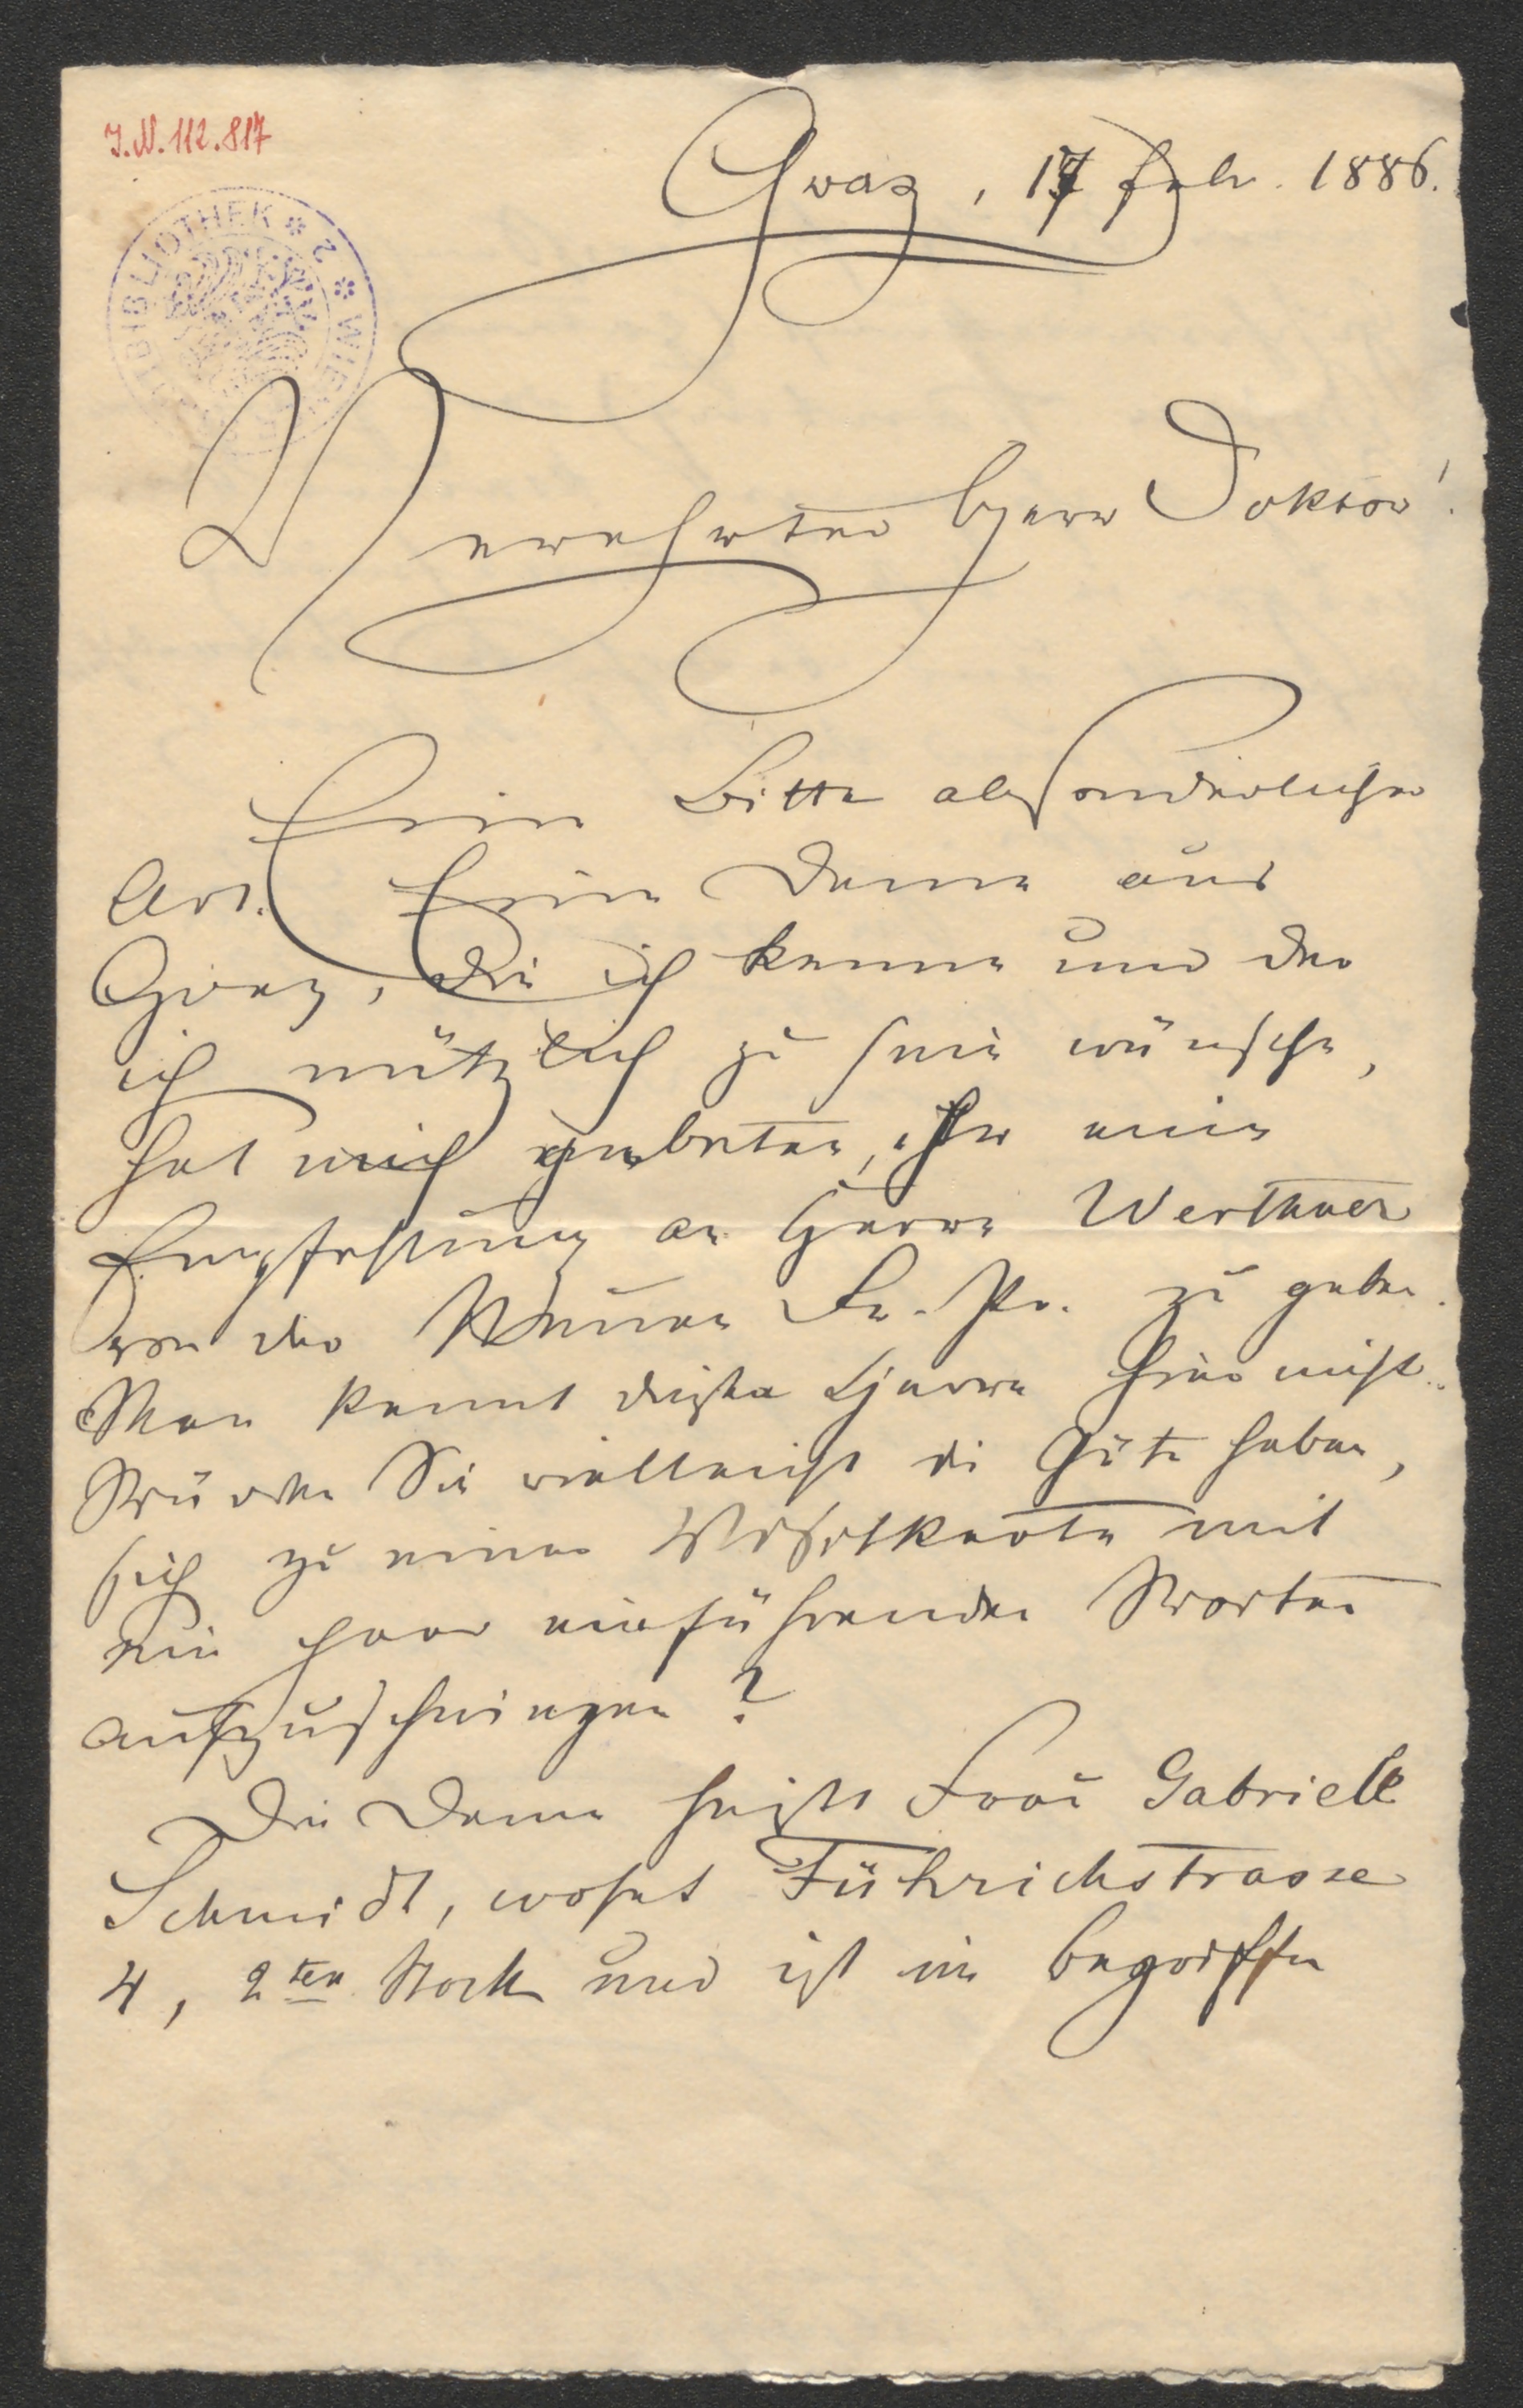 I.N. 112.817
BIBLIOTHEK * 2 * WIEN
Graz, 17 Febr. 1886.
Verehrter Herr Doktor!
Eine Bitte absonderlicher
Art. Eine Dame aus
Graz, die ich kenne und der
ich nützlich zu sein wünsche,
hat mich gebeten, ihr eine
Empfehlung an Herrn Werthner
von der Neuen Fr. Pr. zu geben.
Man kennt diesen Herrn hier nicht.
Würden Sie vielleicht die Güte haben,
sich zu einer Visitkarte mit
ein paar einführenden Worten
aufzuschwingen?
Die Dame heißt Frau Gabriele
Schmidt, wohnt Führichstrasse
4, 2ten Stock und ist im Begriffe